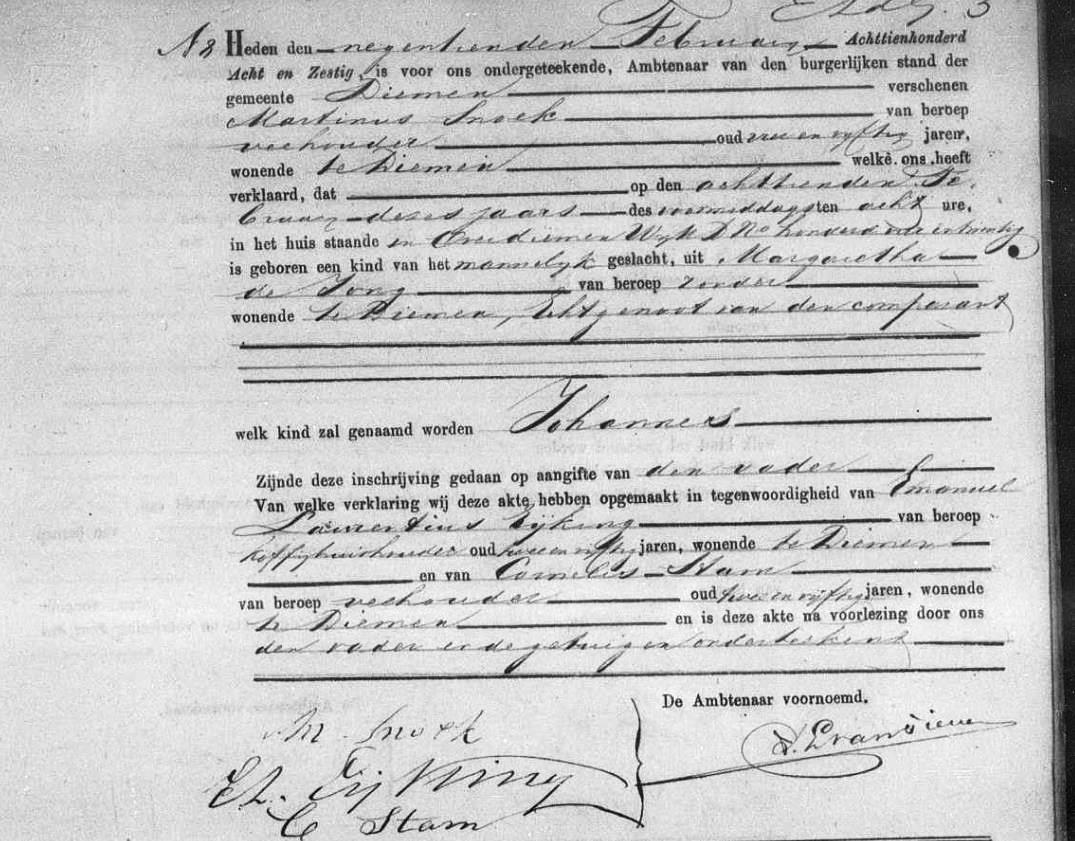 N 8 Heden den negentienden Februarij Achttienhonderd
Acht en Zestig, is voor ons ondergeteekende, Ambtenaar van den burgerlijken stand der
gemeente Diemen verschenen
Martinus Snoek van beroep
veehouder oud en vijftig jaren,
wonende te Diemen welke ons heeft
verklaard, dat op den achttienden Fe-
bruarij dezes jaars des voormiddags ten acht ure,
in het huis staande in Overdiemen Wijk D No honderd
is geboren een kind van het mannelijk geslacht, uit Margaretha
de Jong van beroep zonder
wonende te Diemen, Echtgenoot van den comparant
welk kind zal genaamd worden Johannes
Zijnde deze inschrijving gedaan op aangifte van den vader
Van welke verklaring wij deze akte hebben opgemaakt in tegenwoordigheid van Emanuel
Laurentius Eijking van beroep
koffijhuishouder oud twee en vijftig jaren, wonende te Diemen
en van Cornelis Stam
van beroep veehouder oud twee en vijftig jaren, wonende
te Diemen en is deze akte na voorlezing door ons
den vader en de getuigen onderteekend
De Ambtenaar voornoemd.
M. Snoek
EL. Eijking
C Stam